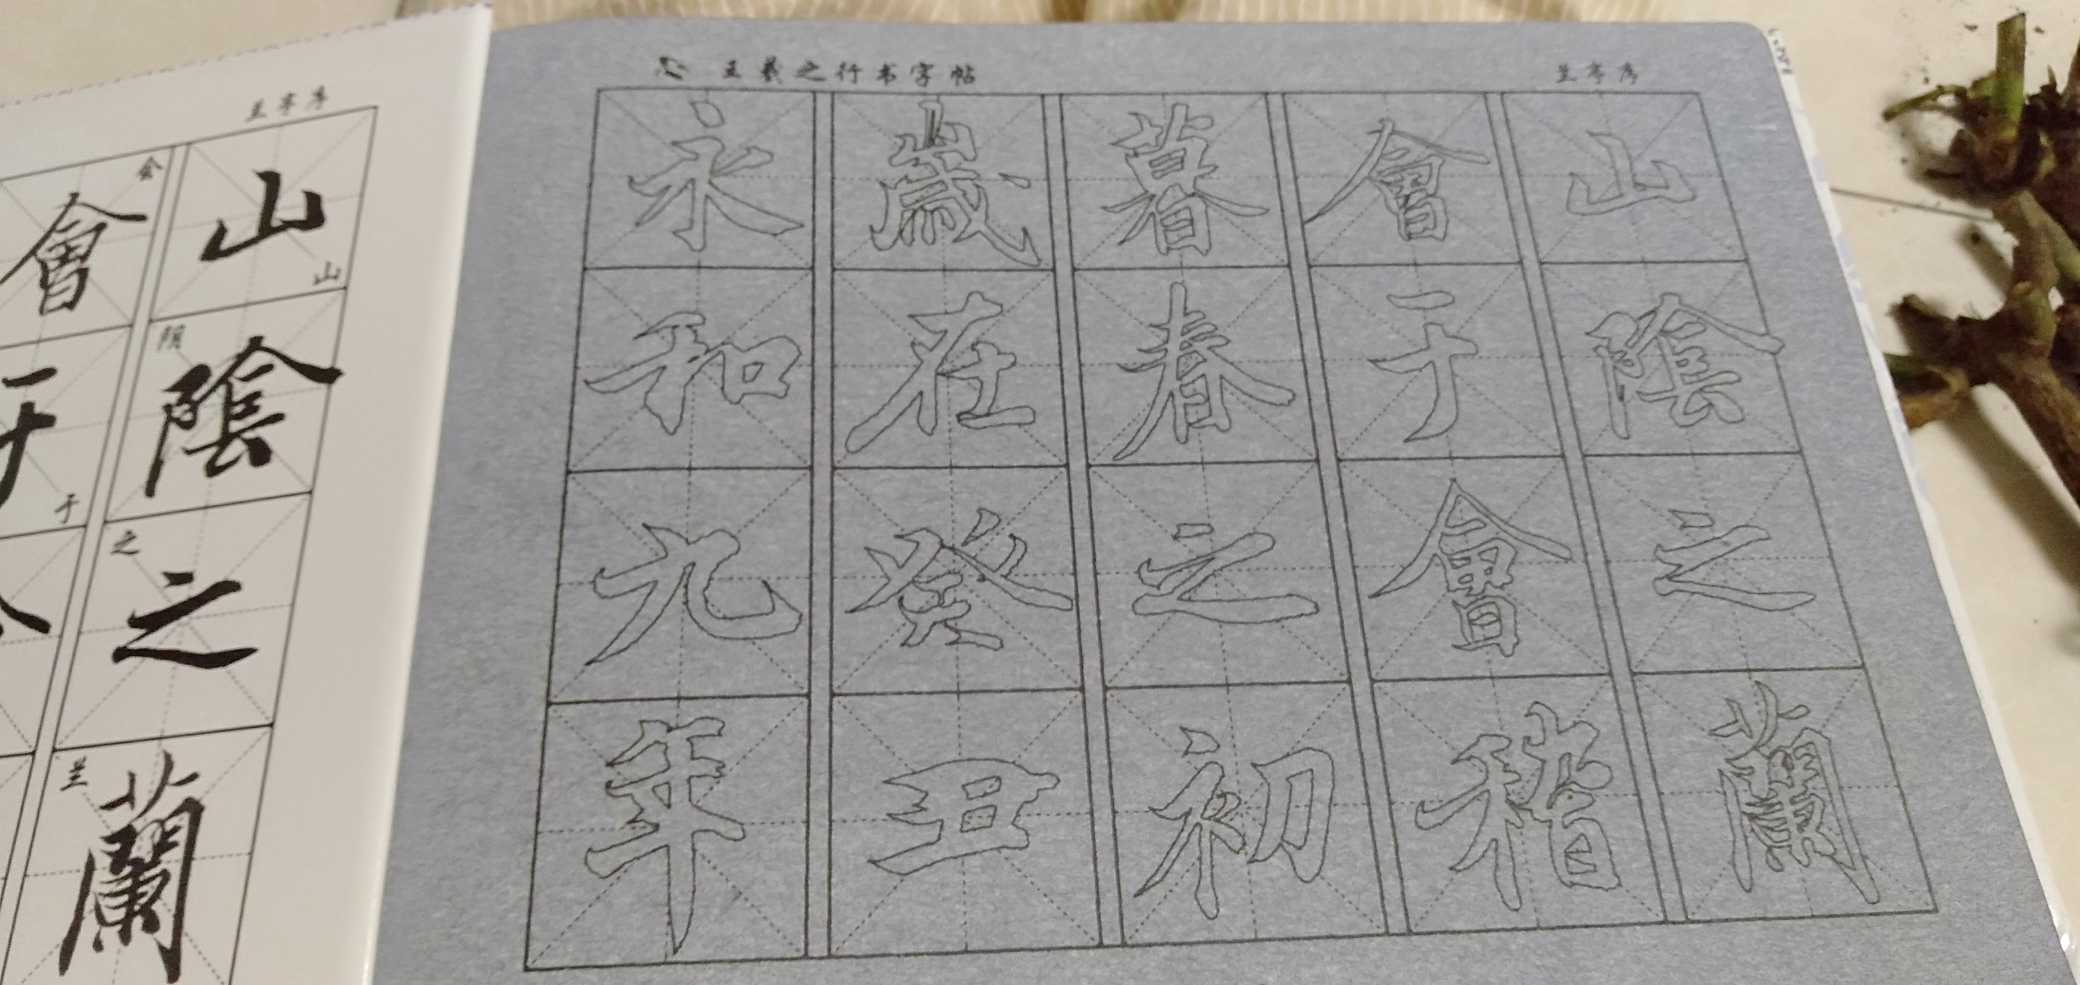 兰亭序
會 会
于 于
山 山
陰 阴
之 之
蘭 兰
王羲之行书字帖
兰亭序
永和九年
歲在癸丑
暮春之初
會于會稽
山陰之蘭